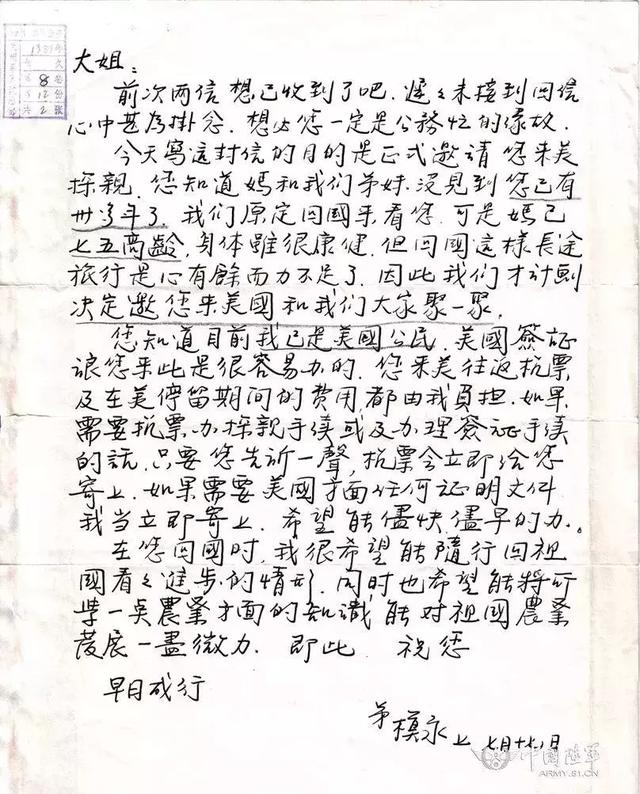 大姐：
前次两信想已收到了吧．遲々未接到回信
心中甚为掛念．想必您一定是公務忙的缘故．
今天寫這封信的目的是正式邀請您来美
探親．您知道媽和我们弟妹沒見到您已有
卅多年了．我们原定回國来看您．可是媽已
七五高龄，身体雖很康健．但回國這樣長途
旅行是心有餘而力不足了．因此我们才计劃
决定邀您来美國和我们大家聚一聚．
您知道目前我已是美國公民．美國簽证
讓您来此是很容易办的．您来美往返机票
及在美停留期间的费用，都由我負担．如果
需要机票办探親手续或及办理簽证手续
的話．只要您告訴一聲，机票会立即给您
寄上．如果需要美國方面任何证明文件
我当立即寄上．希望能儘快儘早的办。
在您回國时，我很希望能隨行回祖
國看々進步的情形．同时也希望能将所
学一点農業方面的知識能对祖國農業
發展一盡微力． 即此 祝您
早日成行
弟模永上 七月十七日
8
12
2
中国陆军
ARMY.81.CN